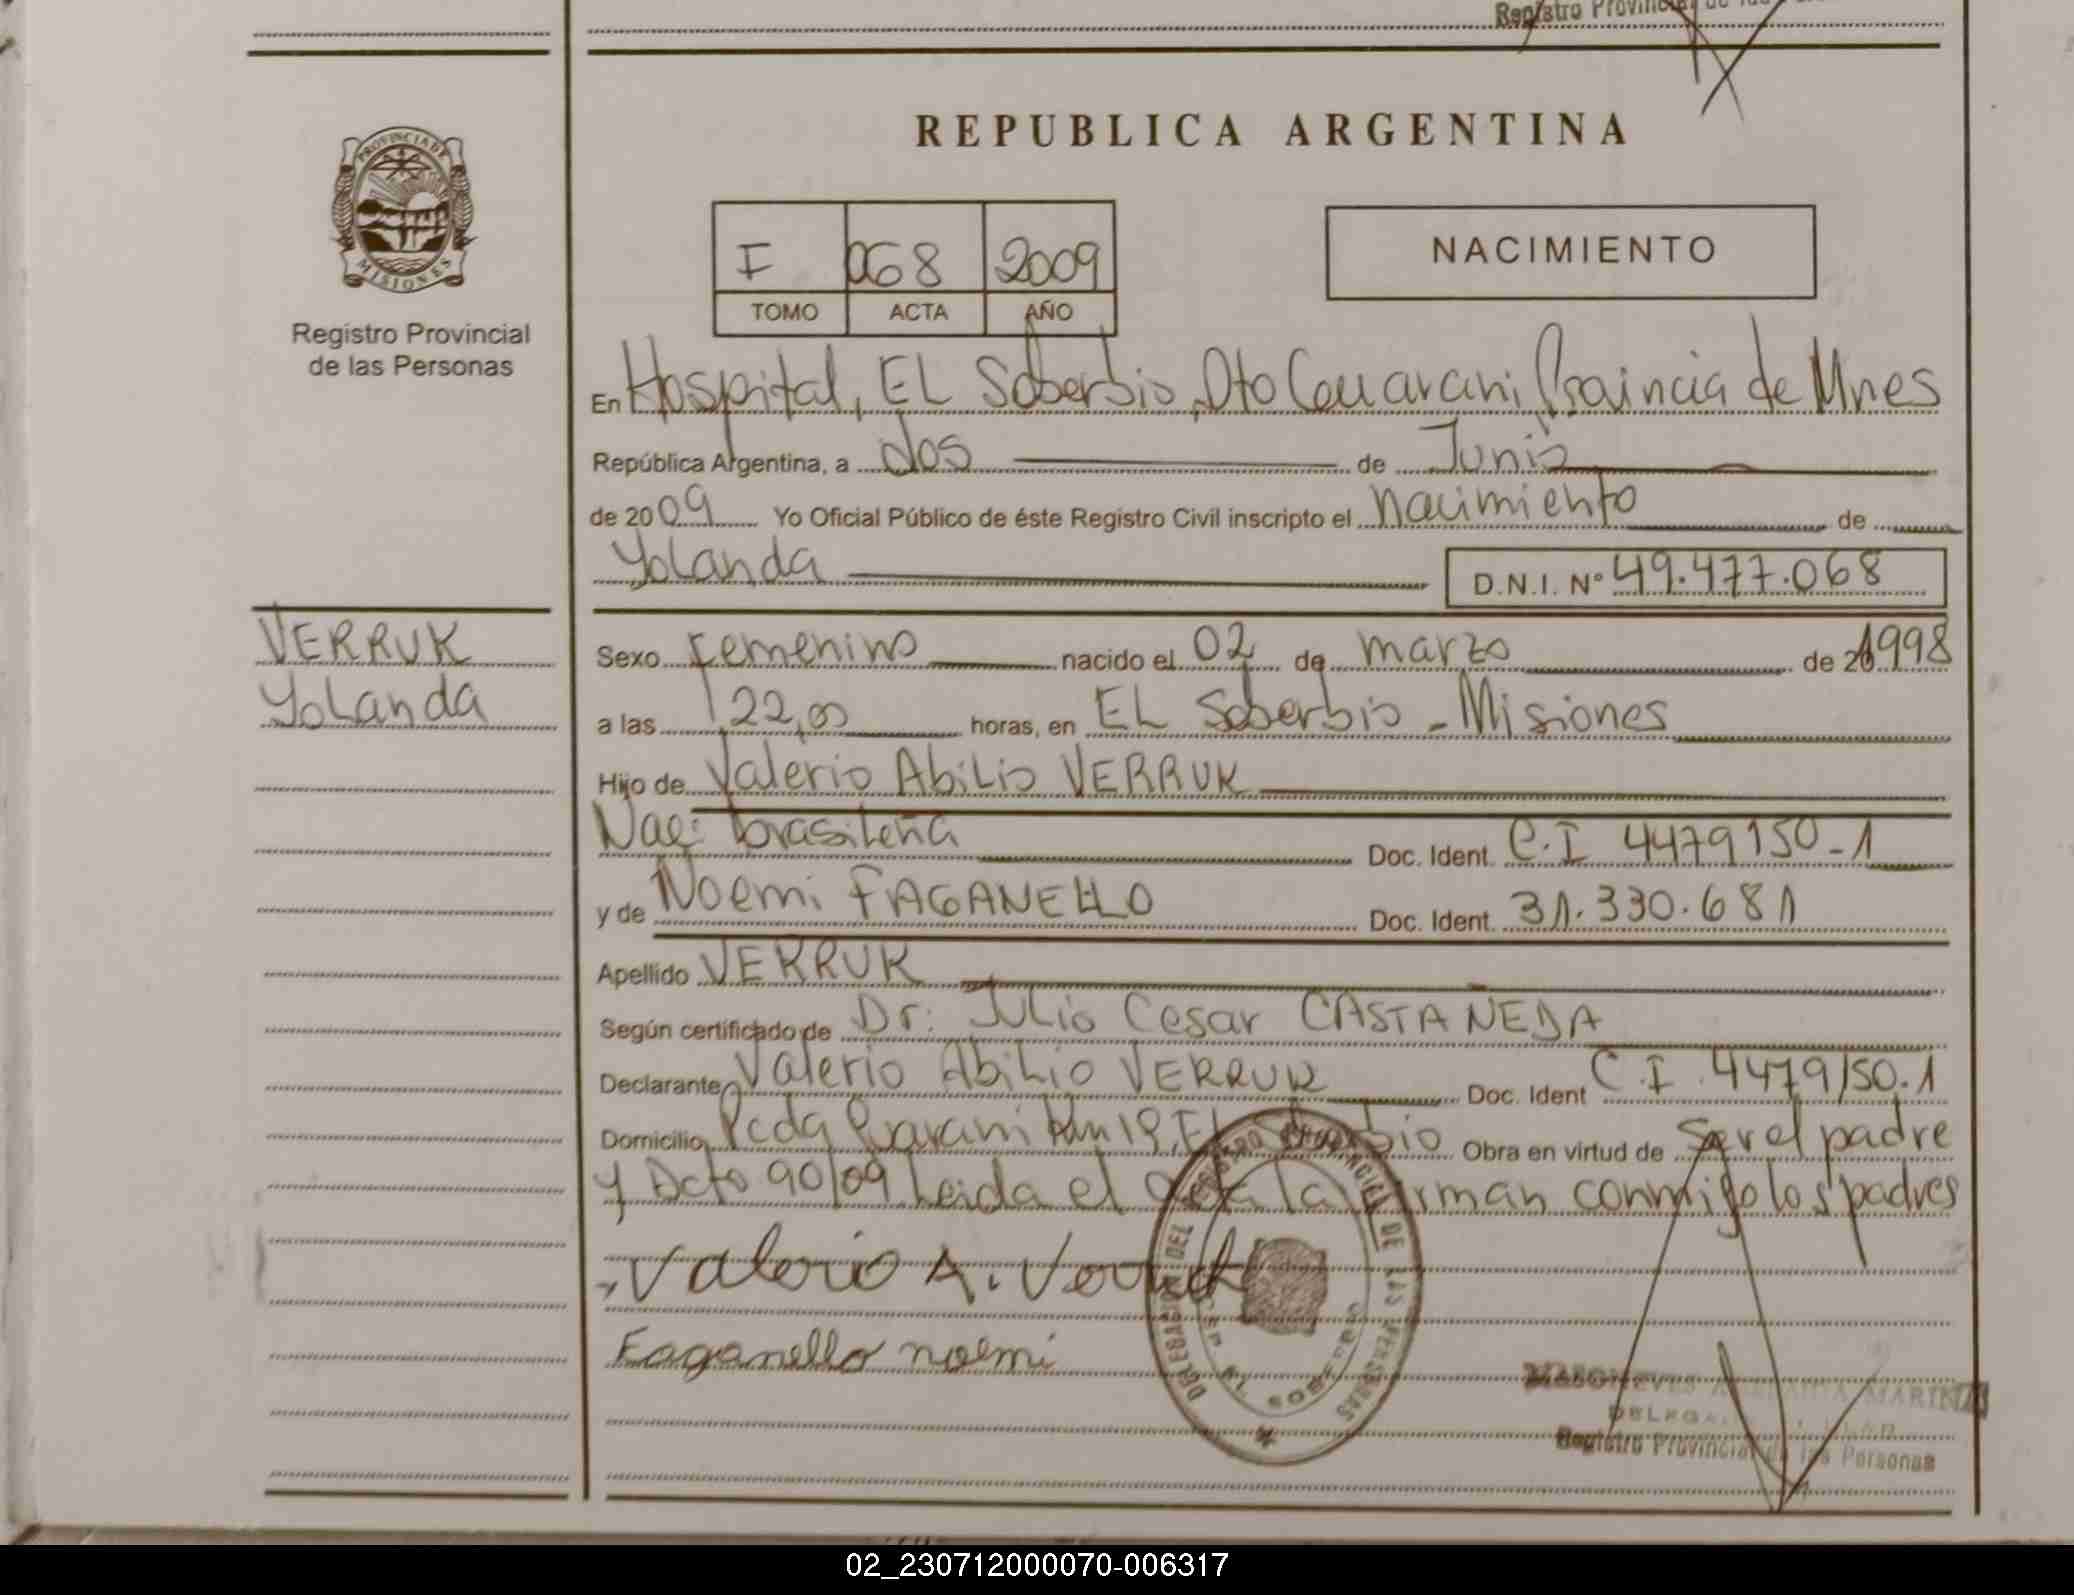 Registro Provincial de las
REPUBLICA ARGENTINA
PROVINCIA DE
MISIONES
Registro Provincial
de las Personas
I 068 2009
TOMO ACTA AÑO
NACIMIENTO
En Hospital, EL Soberbio, Dto Guarani Provincia de Mnes
República Argentina, a dos de Junio
de 2009 Yo Oficial Público de éste Registro Civil inscripto el nacimiento de
Yolanda D.N.I. Nº 49.477.068
VERRUK
Yolanda
Sexo Femenino nacido el 02 de marzo de 1998
a las 22,00 horas, en EL Soberbio - Misiones
Hijo de Valerio Abilio VERRUK
Nac: brasileña Doc. Ident. C.I 4479150-1
y de Noemi FAGANELLO Doc. Ident. 31.330.681
Apellido VERRUK
Según certificado de Dr: Julio Cesar CASTAÑEDA
Declarante Valerio Abilio VERRUK Doc. Ident C.I 4479150.1
Domicilio Pcda Guarani Km 19, El Soberbio Obra en virtud de ser el padre
y Dcto 90/09 Leida el acta la firman conmigo los padres
Valerio A. Verruck
Faganello noemi
DELEGACION DEL REGISTRO PROVINCIAL DE LAS PERSONAS
EL SOBERBIO
MARINA
Registro Provincial de las Personas
02_230712000070-006317